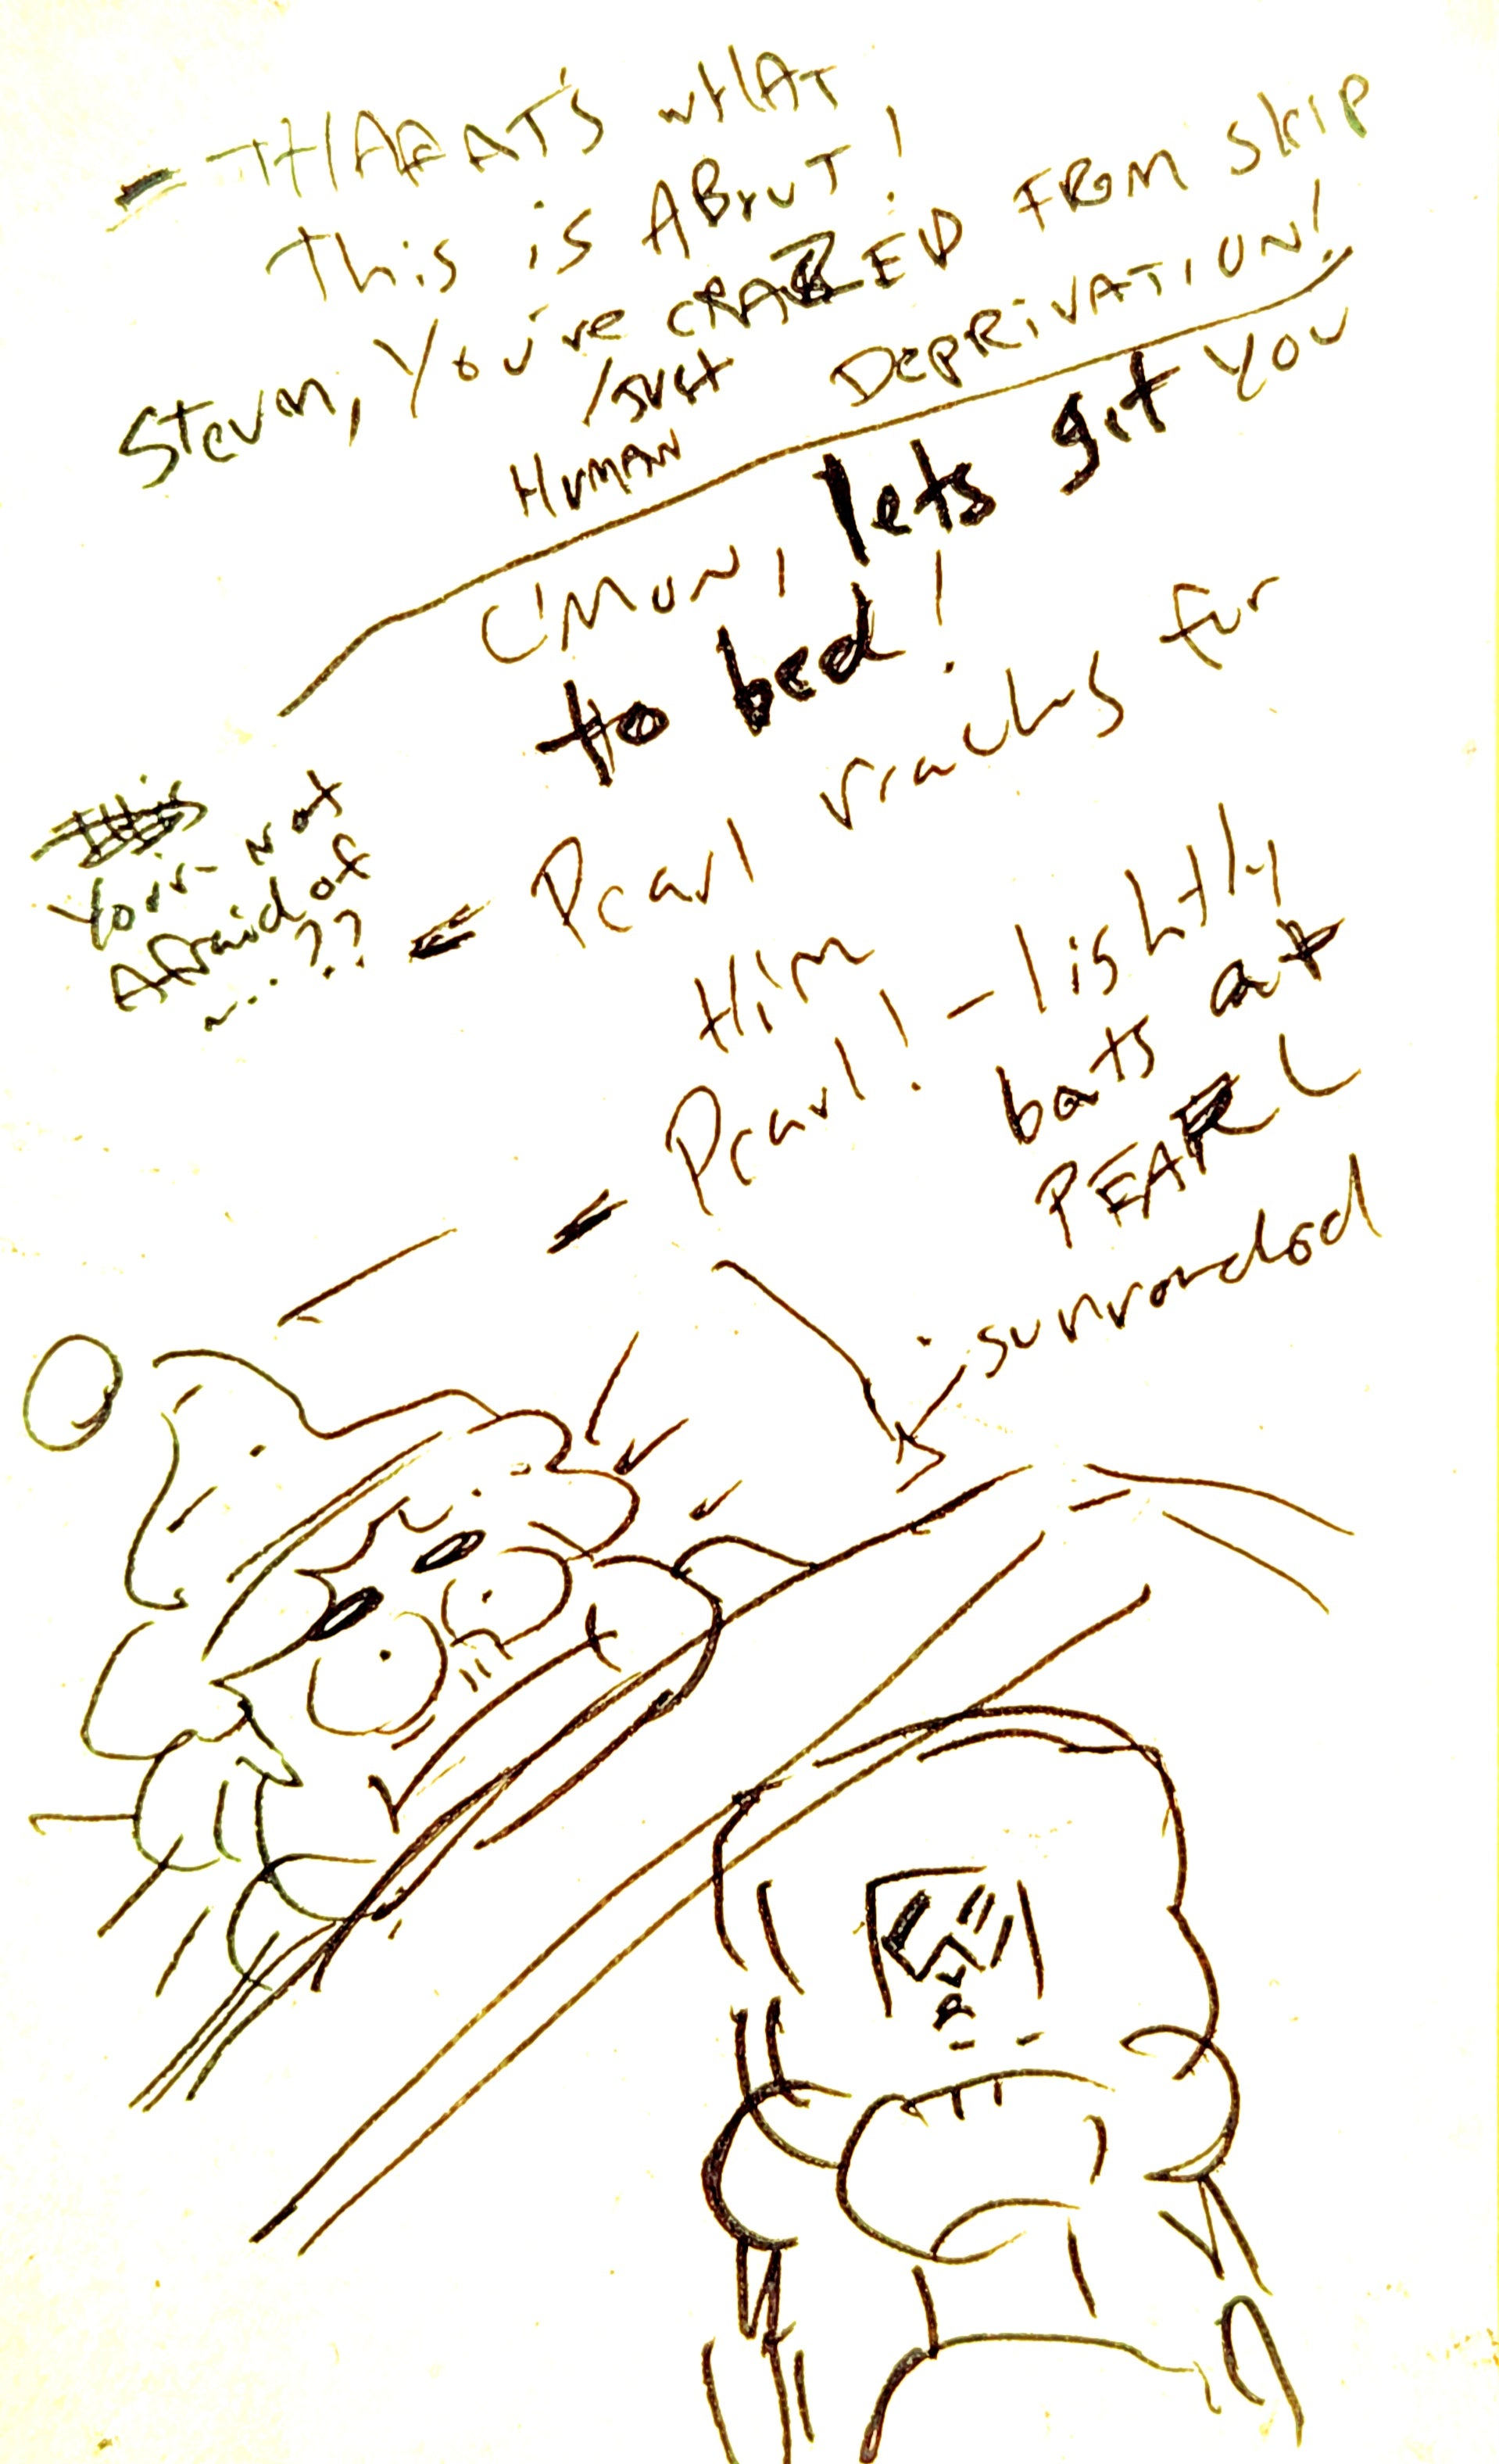 - THAAAT'S WHAT
This is ABOUT!
Steven, You're CRAZED FROM Slrip
/Just DEPRIVATION!
HUMAN
C'MON, lets get you
to bed!
You're not
Afraid of
...??
- Pearl reaches for
Him
- Pearl! - lightly
bats at
PEARL
surrounded